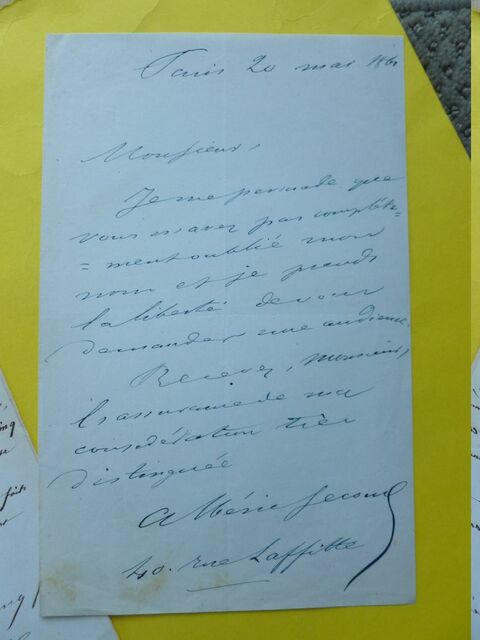 Paris 20 mai 1861
Monsieur,
Je me persuade que
vous n'avez pas complète=
=ment oublié mon
nom et je prends
la liberté de vous
demander une audience.
Recevez, monsieur,
l'assurance de ma
considération très
distinguée
Albéric Second
40. rue Laffitte